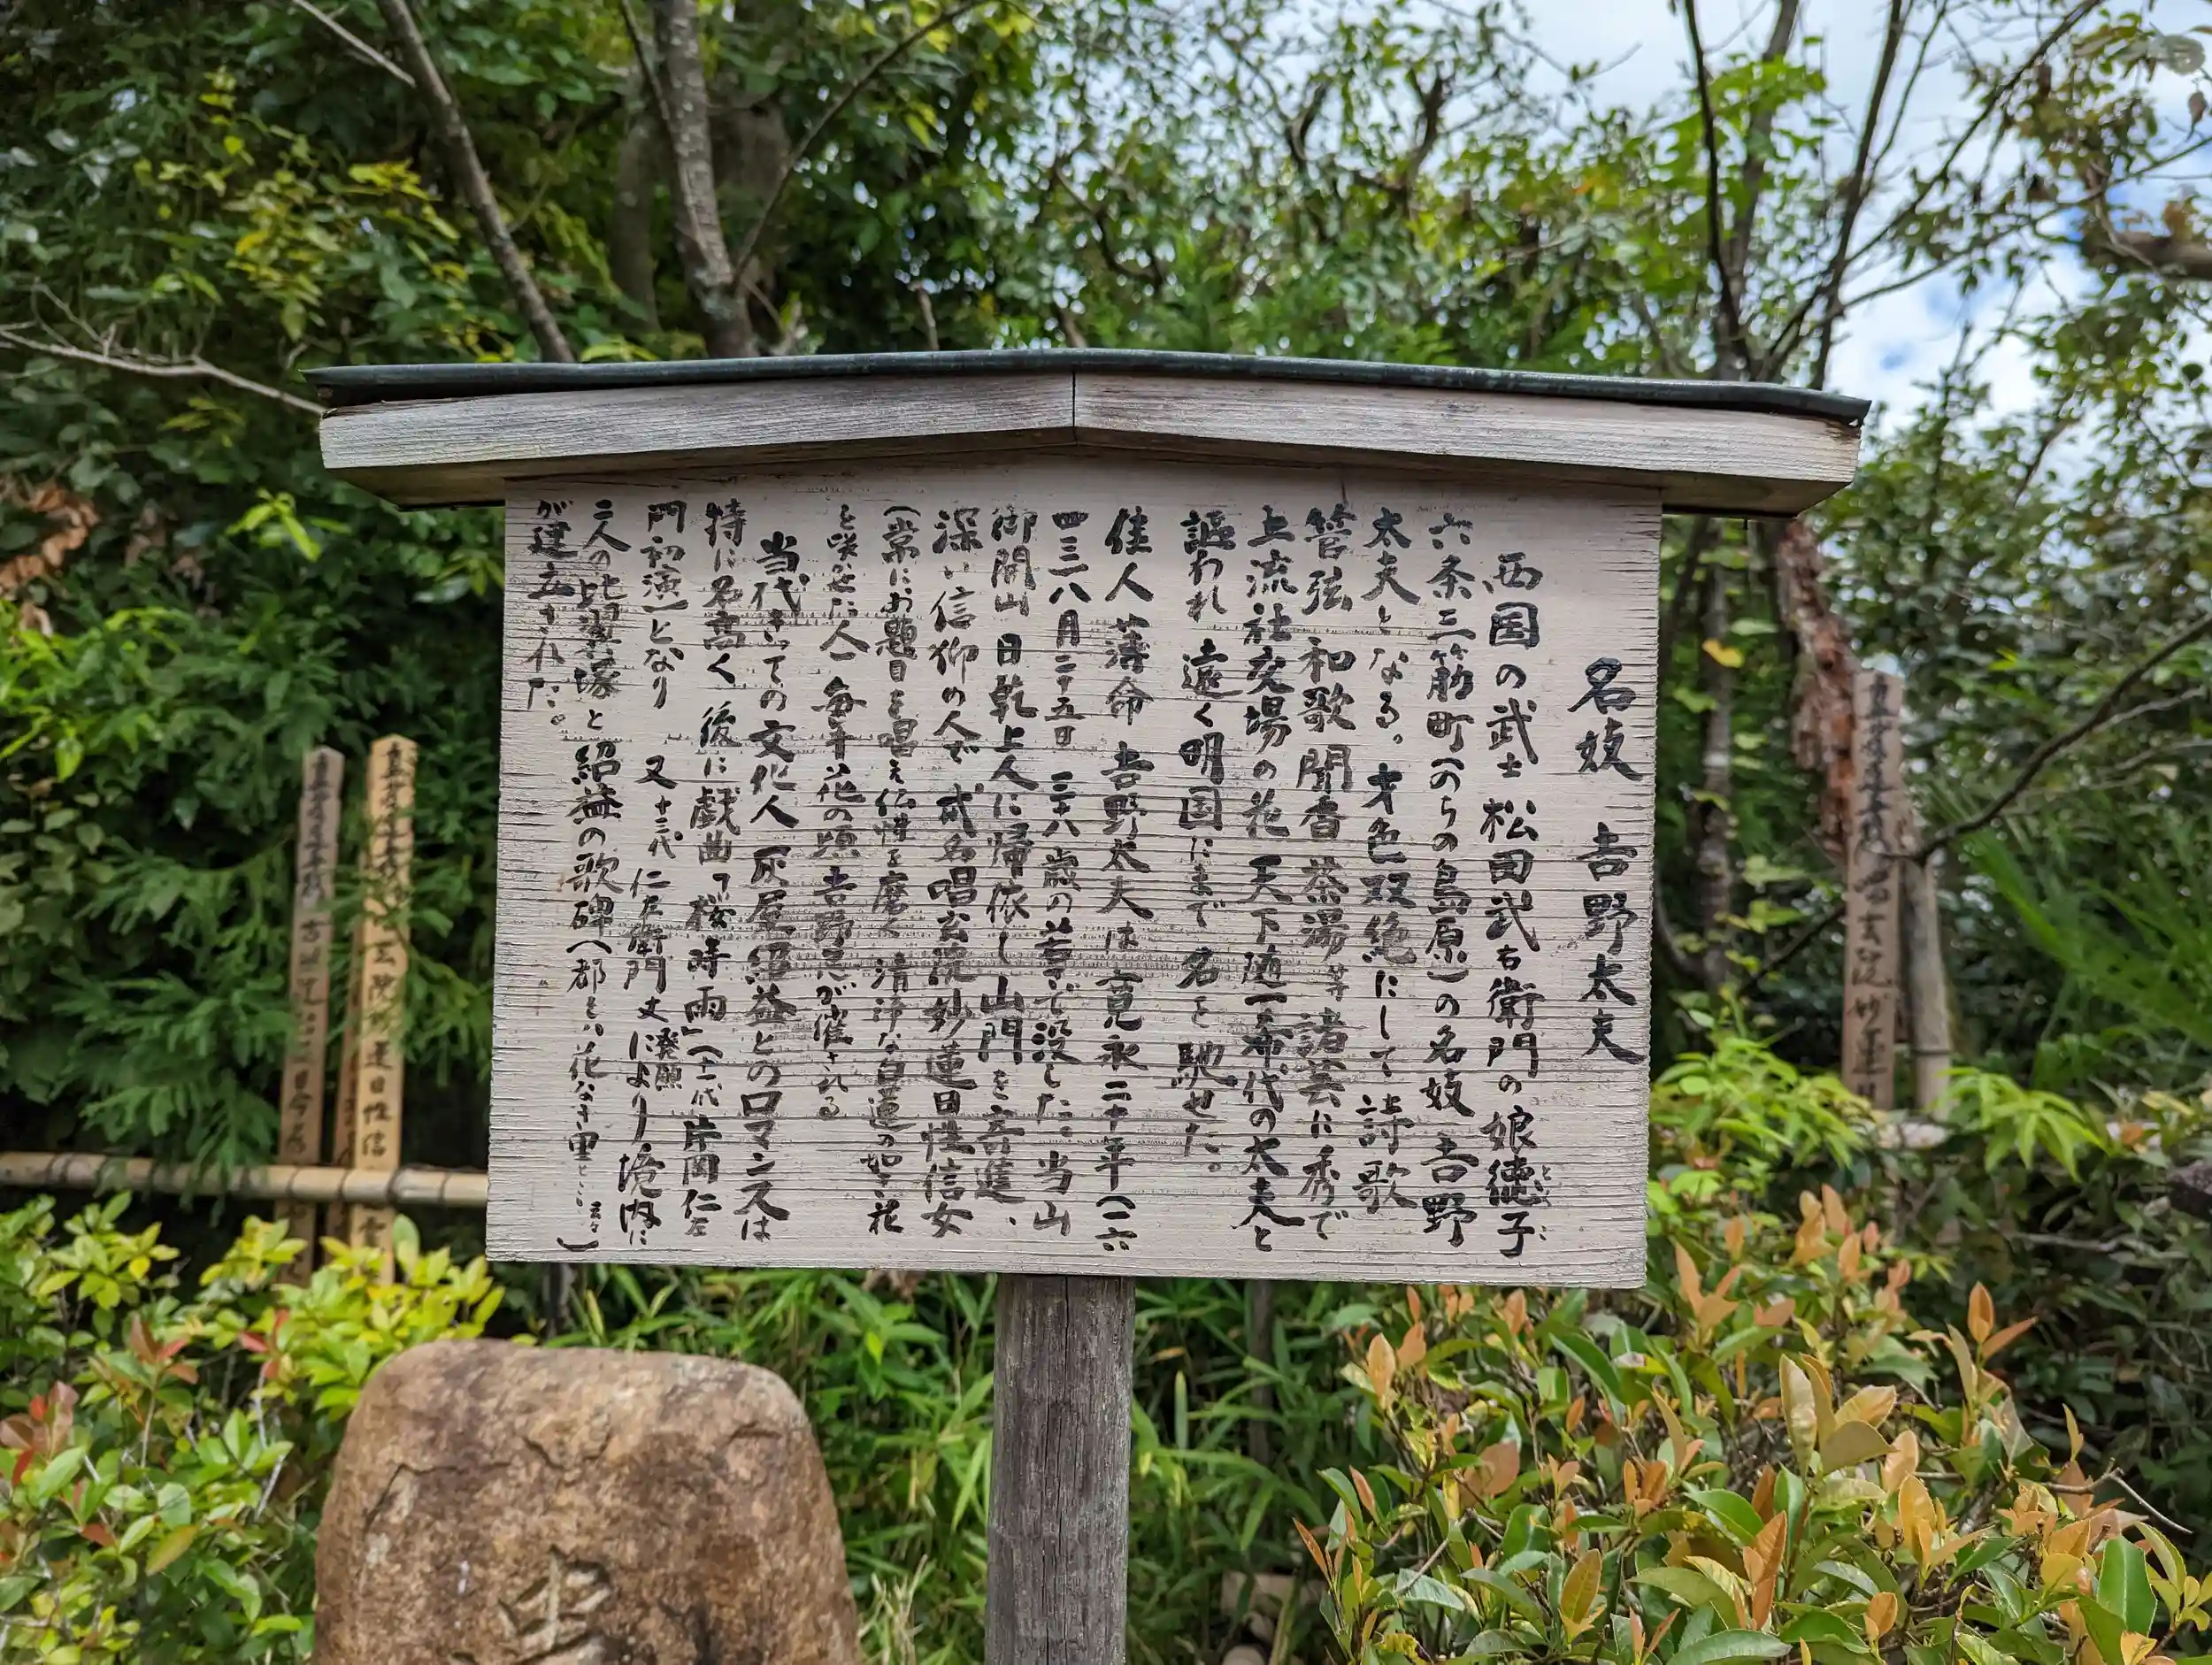 名妓 吉野太夫
西国の武士 松田武右衛門の娘徳子
六条三筋町(のちの島原)の名妓 吉野
太夫となる。才色双絶にして 詩歌
管弦 和歌 聞香 茶湯等 諸芸に秀で
上流社交場の花 天下随一希代の太夫と
謳われ 遠く明国にまで 名を 馳せた。
佳人薄命 吉野太夫は寛永二十年(一六
四三)八月二十五日 三十八歳の若さで没した。当山
御開山 日乾上人に帰依し山門を寄進、
深い信仰の人で 戒名 唱玄院妙蓮日性信女
(常にお題目を唱え仏性を磨く 清浄な白蓮の如き花
を咲かせた人)毎年花の頃 吉野忌が催される
当代きっての文化人 灰屋紹益とのロマンスは
特に名高く 後に戯曲「桜時雨」(十一代片岡仁左
門初演)となり 又十三代 仁左衛門丈 発願により 境内に
二人の比翼塚と 紹益の歌碑(都をは花なき里と 云々)
が建立された。